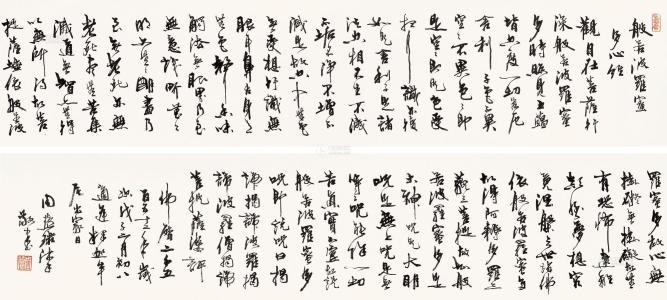 般若波羅蜜
多心經
觀自在菩薩行
深般若波羅蜜
多時照見五蘊
皆空度一切苦厄
舍利子色不異
空空不異色色即
是空空即是色受
想行識亦復
如是舍利子是諸
法空相不生不滅
不垢不淨不增不
減是故空中無色
無受想行識無
眼耳鼻舌身意
無色聲香味
觸法無眼界乃至
無意識界無無
明亦無無明盡乃
至無老死亦無
老死盡無苦集
滅道無智亦無得
以無所得故菩
提薩埵依般若波
羅蜜多故心無
罣礙無罣礙故無
有恐怖遠離
顛倒夢想究
竟涅槃三世諸佛
依般若波羅蜜多
故得阿耨多羅三
藐三菩提故知般
若波羅蜜多是
大神咒是大明
咒是無上咒是無
等等咒能除一切
苦真實不虛故說
般若波羅蜜多
咒即說咒曰揭
諦揭諦波羅揭
諦波羅僧揭諦
菩提薩婆訶
佛曆二千五
百五十年歲
次戊子二月初八
適逢釋迦牟
尼出家日